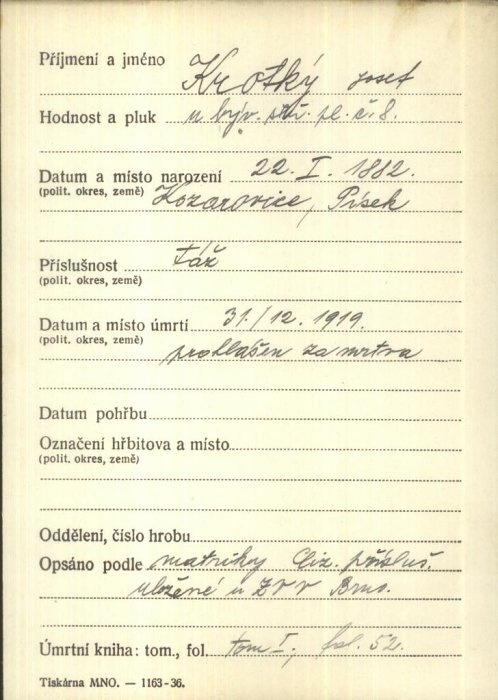 Příjmení a jméno Krotký Josef
Hodnost a pluk u býv. stř. pl. č. 8.
Datum a místo narození 22. I. 1882.
(polit. okres, země) Kozarovice, Písek
Příslušnost táž
(polit. okres, země)
Datum a místo úmrtí 31./12. 1919.
(polit. okres, země) prohlášen za mrtva
Datum pohřbu
Označení hřbitova a místo
(polit. okres, země)
Oddělení, číslo hrobu
Opsáno podle matriky přísluš.
uložené u ZVV Brno.
Úmrtní kniha: tom., fol. tom I, fol. 52.
Tiskárna MNO. — 1163-36.